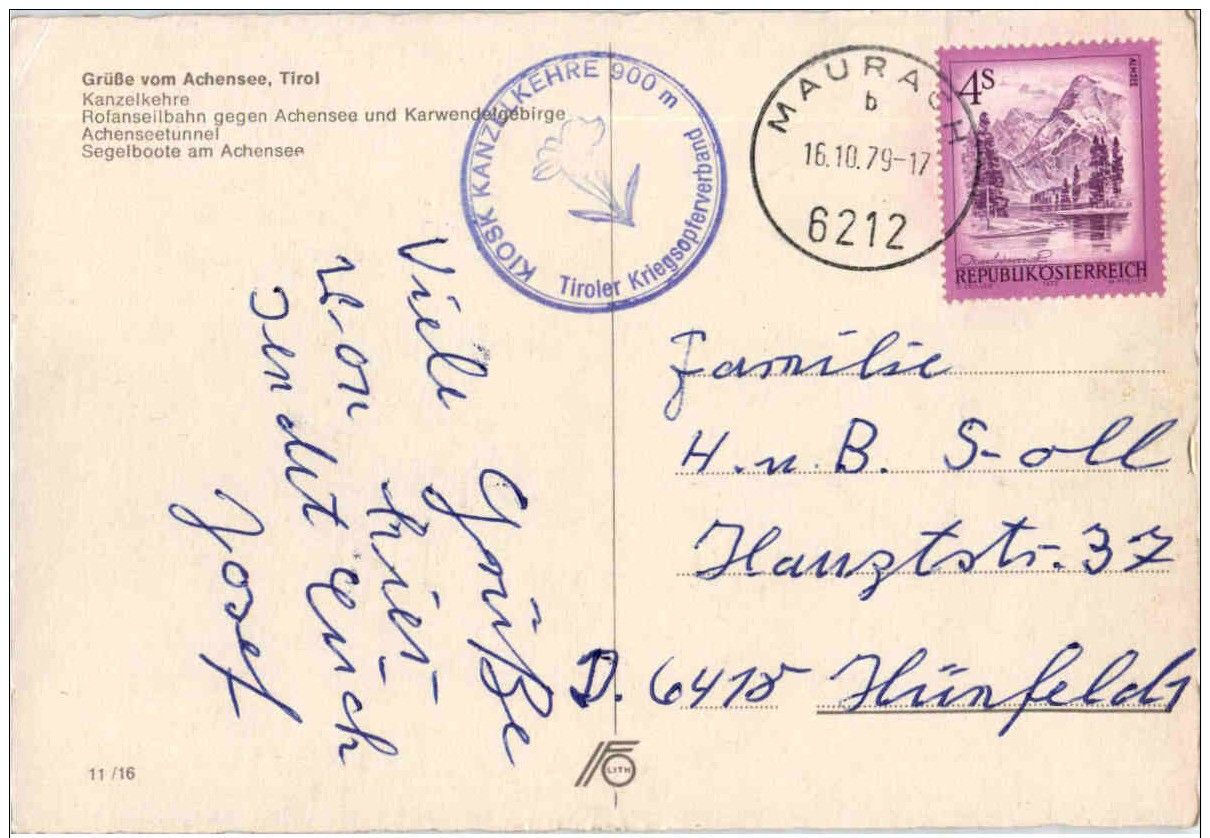 Grüße vom Achensee, Tirol
Kanzelkehre
Rofanseilbahn gegen Achensee und Karwendelgebirge
Achenseetunnel
Segelboote am Achensee
KIOSK KANZELKEHRE 900 m
Tiroler Kriegsopferverband
MAURACH
b
16.10.79-17
6212
4S
ALMSEE
REPUBLIK ÖSTERREICH
Viele Grüße
von hier
sendet Euch
Josef
Familie
H. u. B. Soll
Hauptstr. 37
D. 6418 Hünfeld 1
11/16
LITH